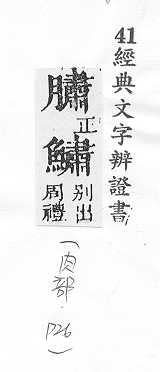 41經典文字辨證書
䐹正鱐別出周禮
(肉部.P26)